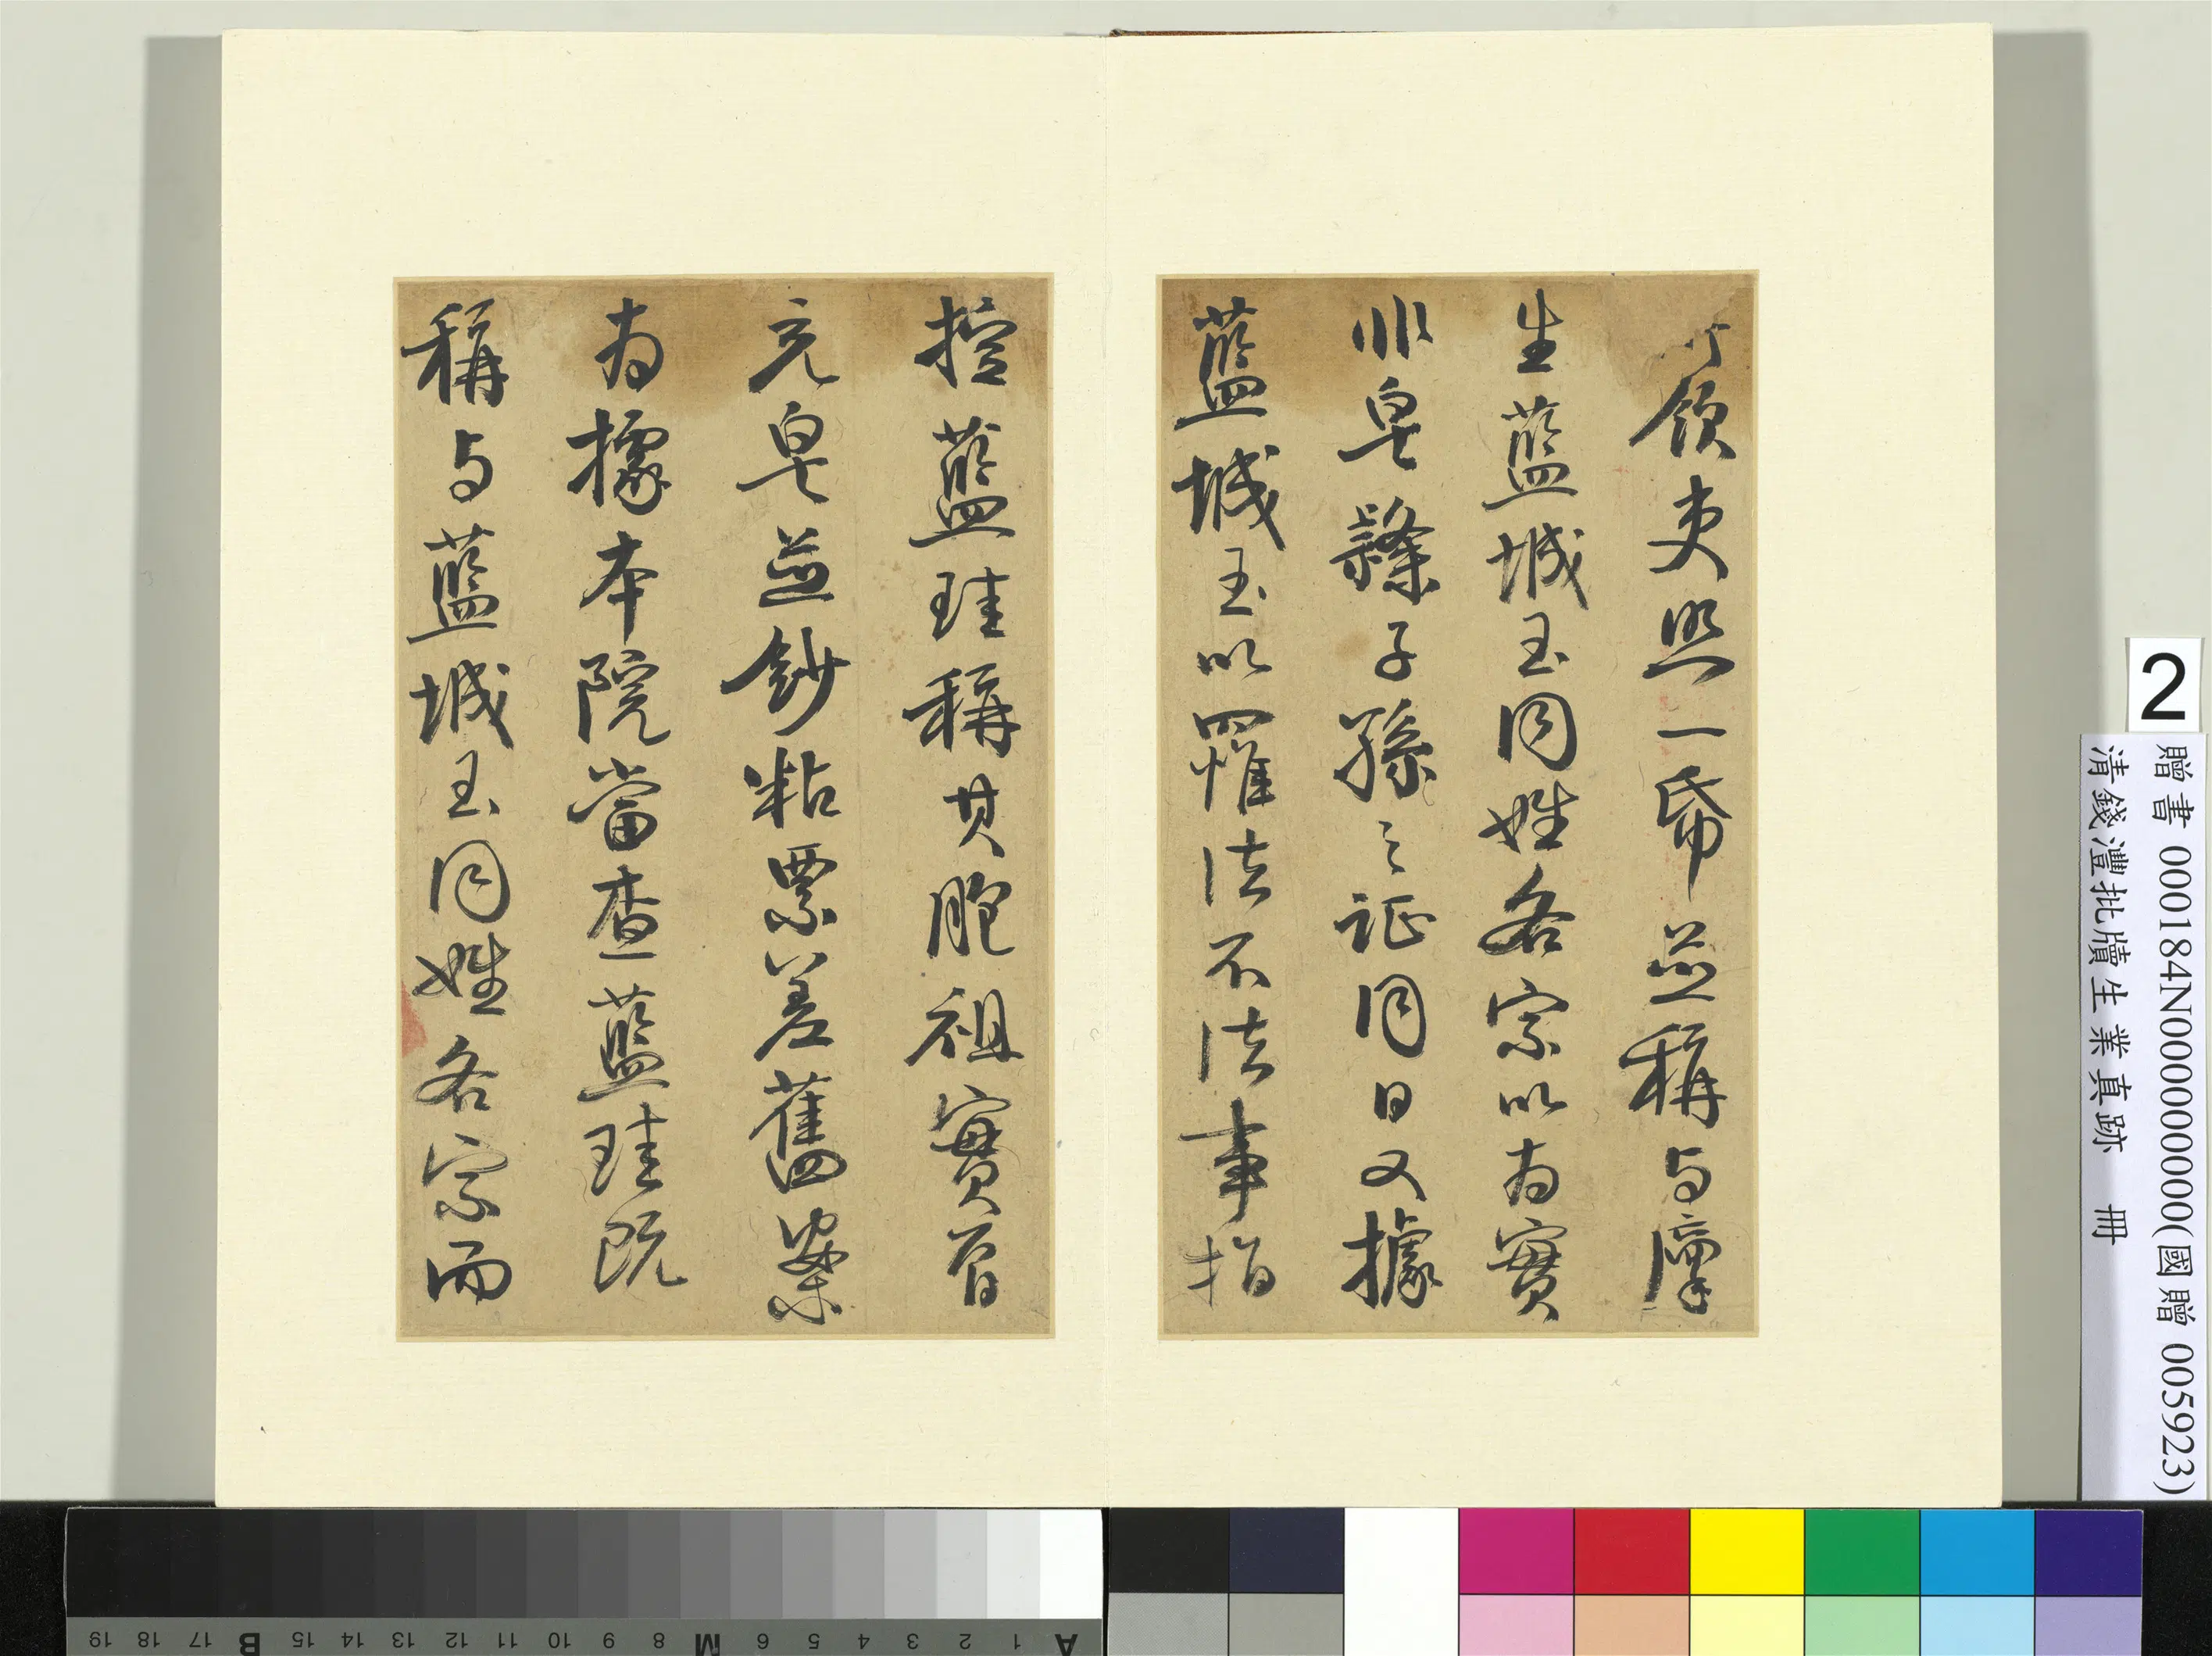 領吏照一紙並稱与廩
生藍城玉同姓各宗以为實
非皂隸子孫之证同日又據
藍城玉以罹法不法事指
控藍珪稱其胞祖實曾
充皂並鈔粘票差舊案
为據本院當查藍珪既
稱与藍城玉同姓各宗而
2
贈書 000184N000000000(國贈 005923)
清錢灃批牘生業真跡 冊
A 1 2 3 4 5 6 M 8 9 10 11 12 13 14 15 B 17 18 19